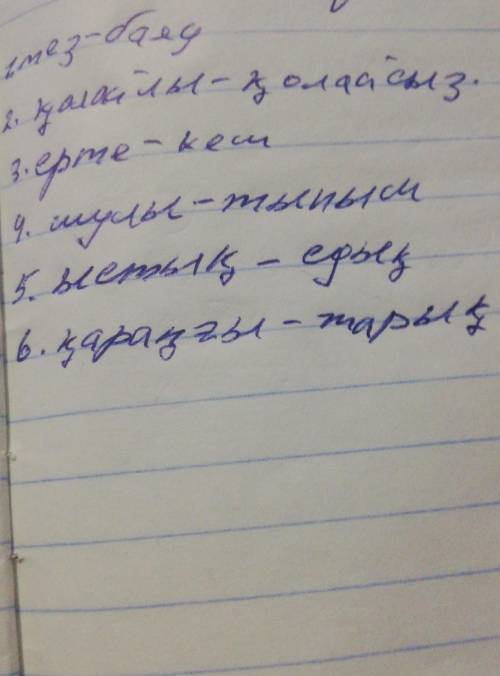 1. тез - баяу
2. қолайлы - қолайсыз.
3. ерте - кеш
4. шулы - тыныш
5. ыстық - сдық
6. қараңғы - жарық